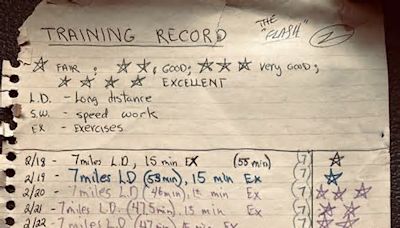 TRAINING RECORD THE "FLASH" 2
☆ FAIR; ☆☆, GOOD; ☆☆☆ Very GOOD;
☆☆☆☆ EXCELLENT
L.D. - Long distance
S.W. - speed work
EX - Exercises
2/18 - 7miles L.D, 15 min. EX (55min) (7) ☆
2/19 - 7miles LD (53min), 15 min Ex (7) ☆
2/20 - 7miles LD (46min), 15 min Ex (7) ☆☆☆
2/21 - 7miles L.D. (47.5min), 15 min Ex (7) ☆☆
2/22 - 7miles LD (47 min) 15 Ex (7) ☆☆